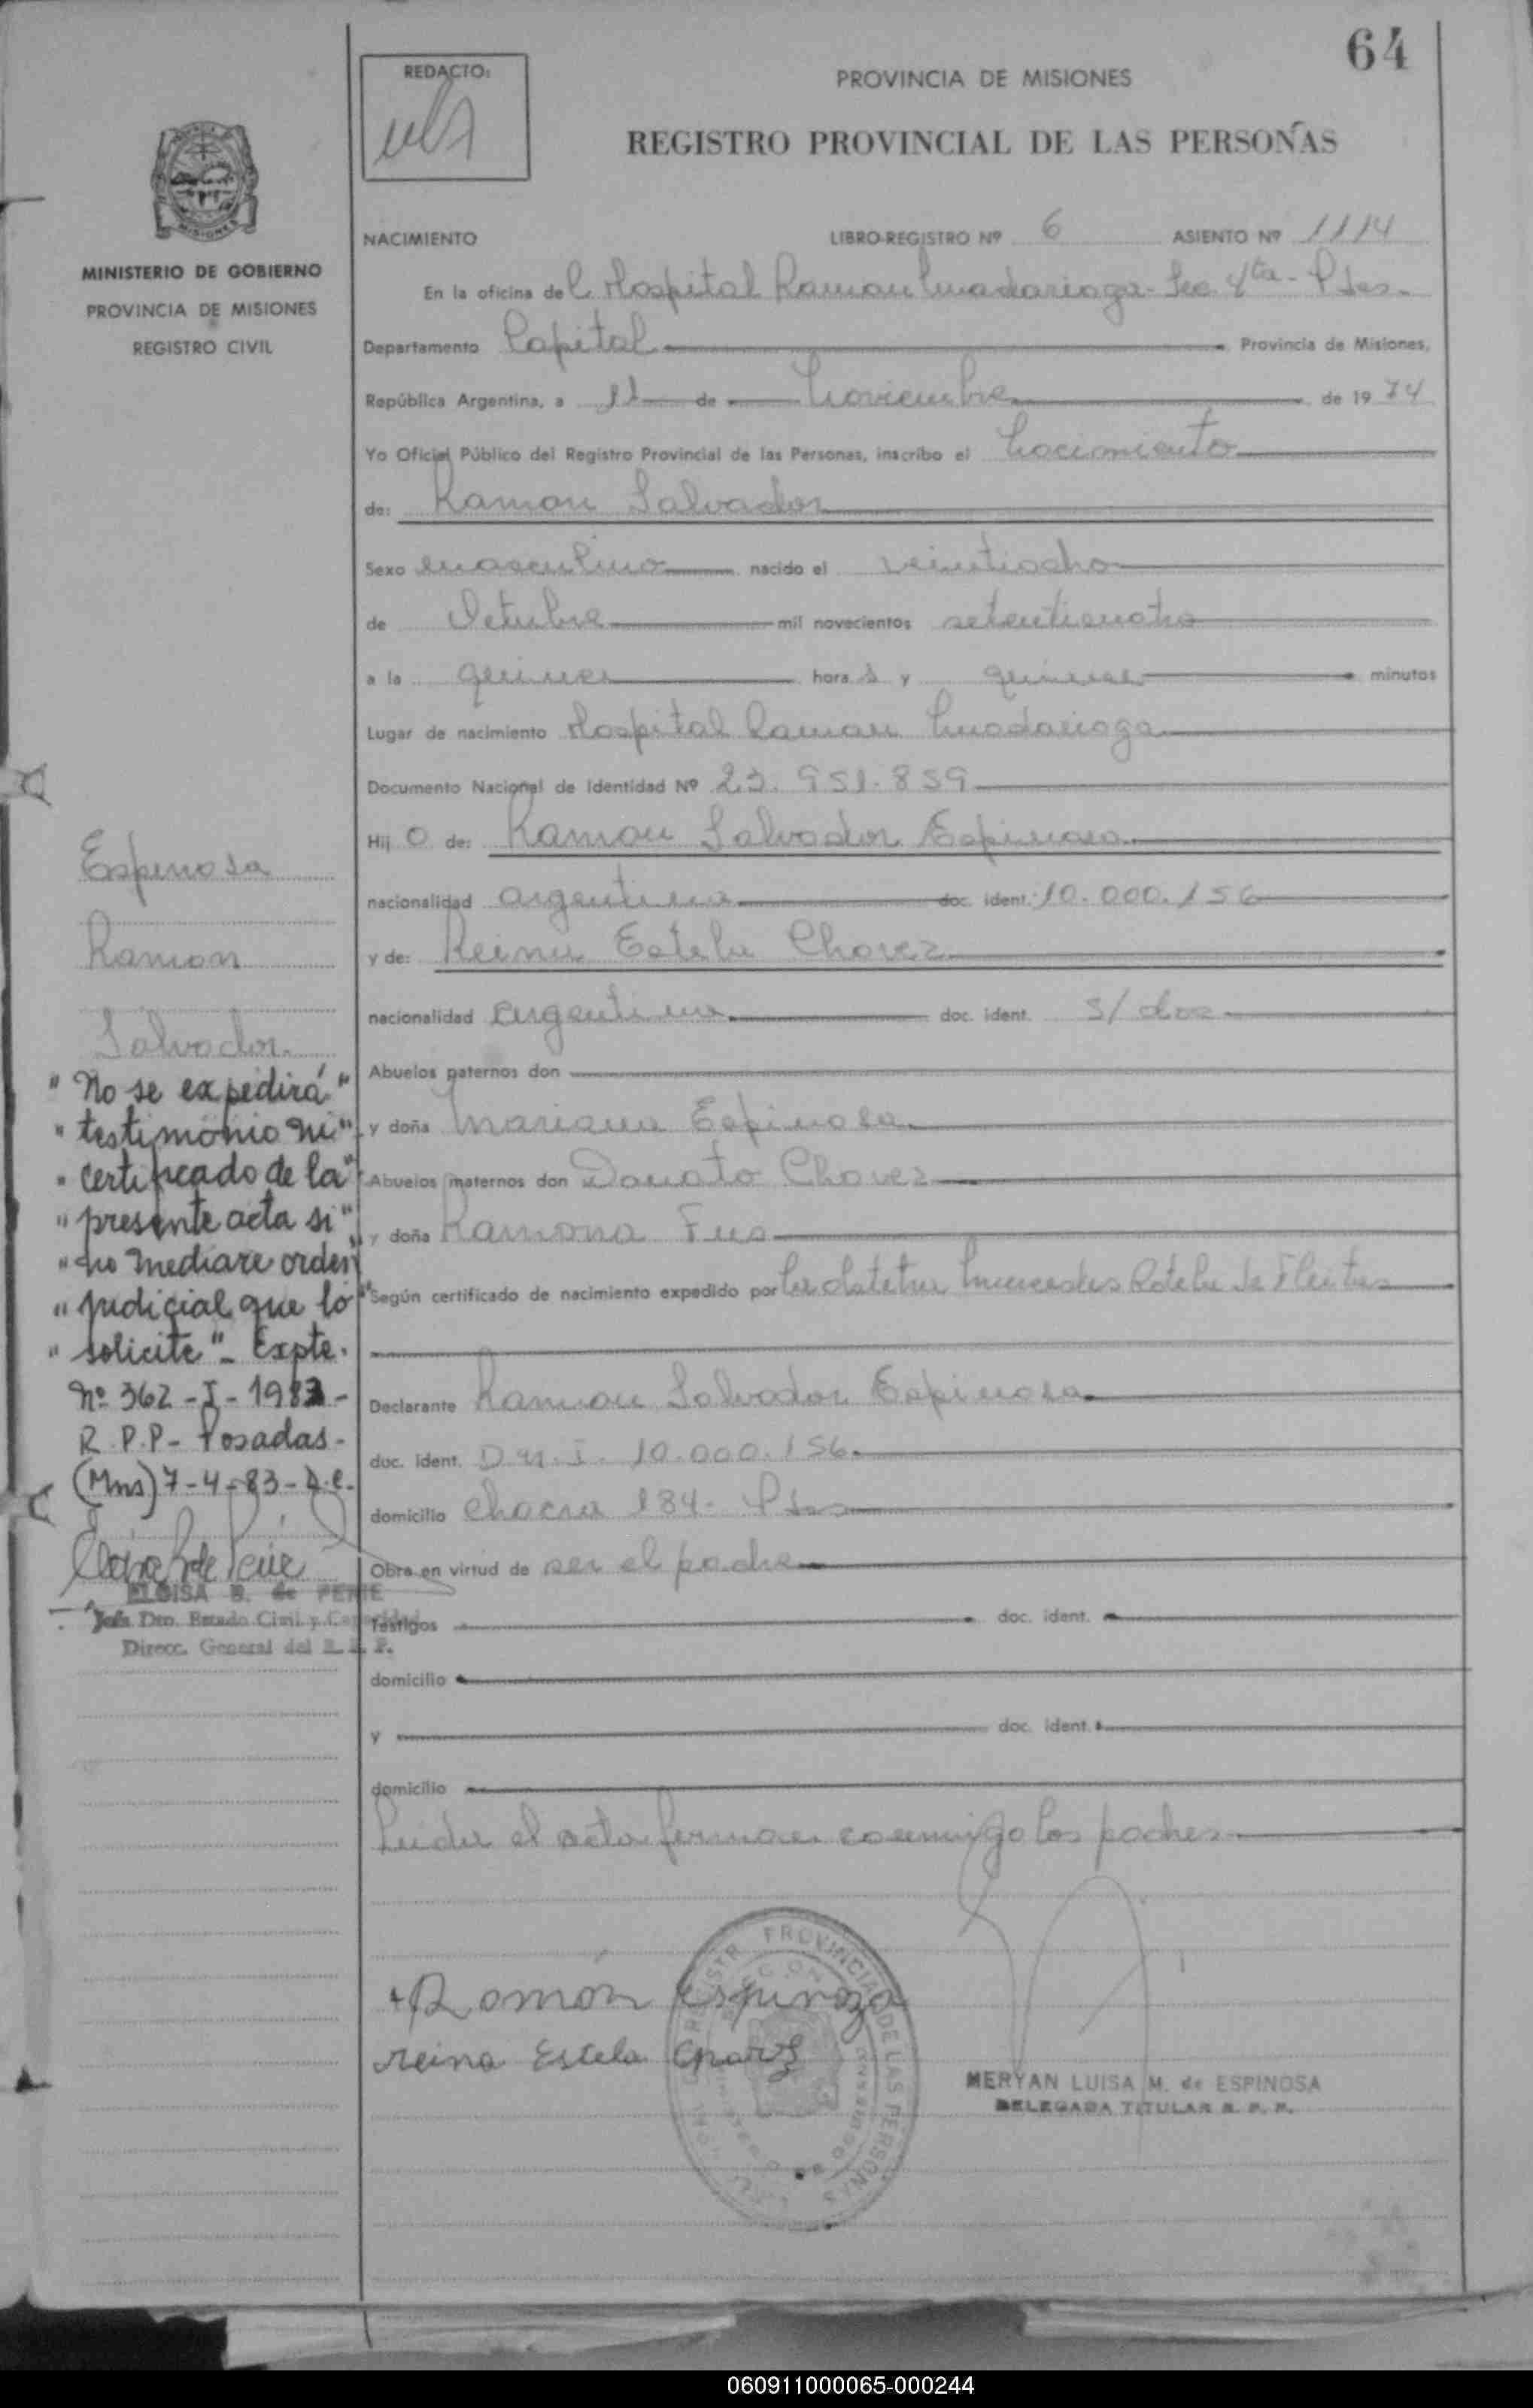 64
REDACTO:
PROVINCIA DE MISIONES
REGISTRO PROVINCIAL DE LAS PERSONAS
MISIONES
MINISTERIO DE GOBIERNO
PROVINCIA DE MISIONES
REGISTRO CIVIL
NACIMIENTO LIBRO-REGISTRO Nº 6 ASIENTO Nº 1114
En la oficina del Hospital Ramon Madariaga - Sec. 4ta - Pdas.
Departamento Capital Provincia de Misiones,
República Argentina, a 11 de Noviembre de 1974
Yo Oficial Público del Registro Provincial de las Personas, inscribo el Nacimiento
de: Ramon Salvador
Sexo masculino nacido el veintiocho
de Octubre mil novecientos setenticuatro
a la quince hora s y quince minutos
Lugar de nacimiento Hospital Ramon Madariaga
Documento Nacional de Identidad Nº 23.951.859
Hij o de: Ramon Salvador Espinosa
nacionalidad argentina doc. ident. 10.000.156
y de: Reina Estela Chavez
nacionalidad argentina doc. ident. s/doc
Abuelos paternos don
y doña Mariana Espinosa
Abuelos maternos don Donato Chavez
y doña Ramona
Según certificado de nacimiento expedido por la obstetra Mercedes Rotela de Fleitas
Declarante Ramon Salvador Espinosa
doc. ident. D.N.I. 10.000.156
domicilio Chacra 184 - Pdas
Obra en virtud de ser el padre
Testigos doc. ident.
domicilio
y doc. ident.
domicilio
Leida el acta firman conmigo los padres
Espinosa
Ramon
Salvador.
"No se expedirá"
"testimonio ni"
"certificado de la"
"presente acta si"
"no mediare orden"
"judicial que lo"
"solicite"- Expte.
Nº 362-I-1983-
R.P.P- Posadas-
(Mns) 7-4-83-D.C.
ELOISA B. de PEHE
Jefa Dto. Estado Civil y Capacidad
Direcc. General del R. P. P.
Ramón Espinoza
reina Estela Chavez
REGISTRO PROVINCIAL DE LAS PERSONAS
MERYAN LUISA M. de ESPINOSA
DELEGADA TITULAR R. P. P.
060911000065-000244